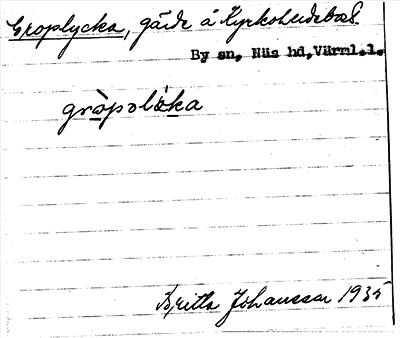 Groplycka, gärde å Kyrkoherdebost.
By sn, Näs hd, Värml.l.
gròpəlöka
Britta Johansson 1935